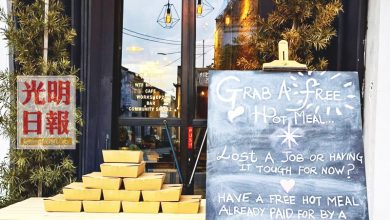 光明
日報
CAFE
WORKSHOPS
BAR
COMMUNITY SPACE
GRAB A FREE
HOT MEAL...
LOST A JOB OR HAVING
IT TOUGH FOR NOW?
HAVE A FREE HOT MEAL
ALREADY PAID FOR BY A